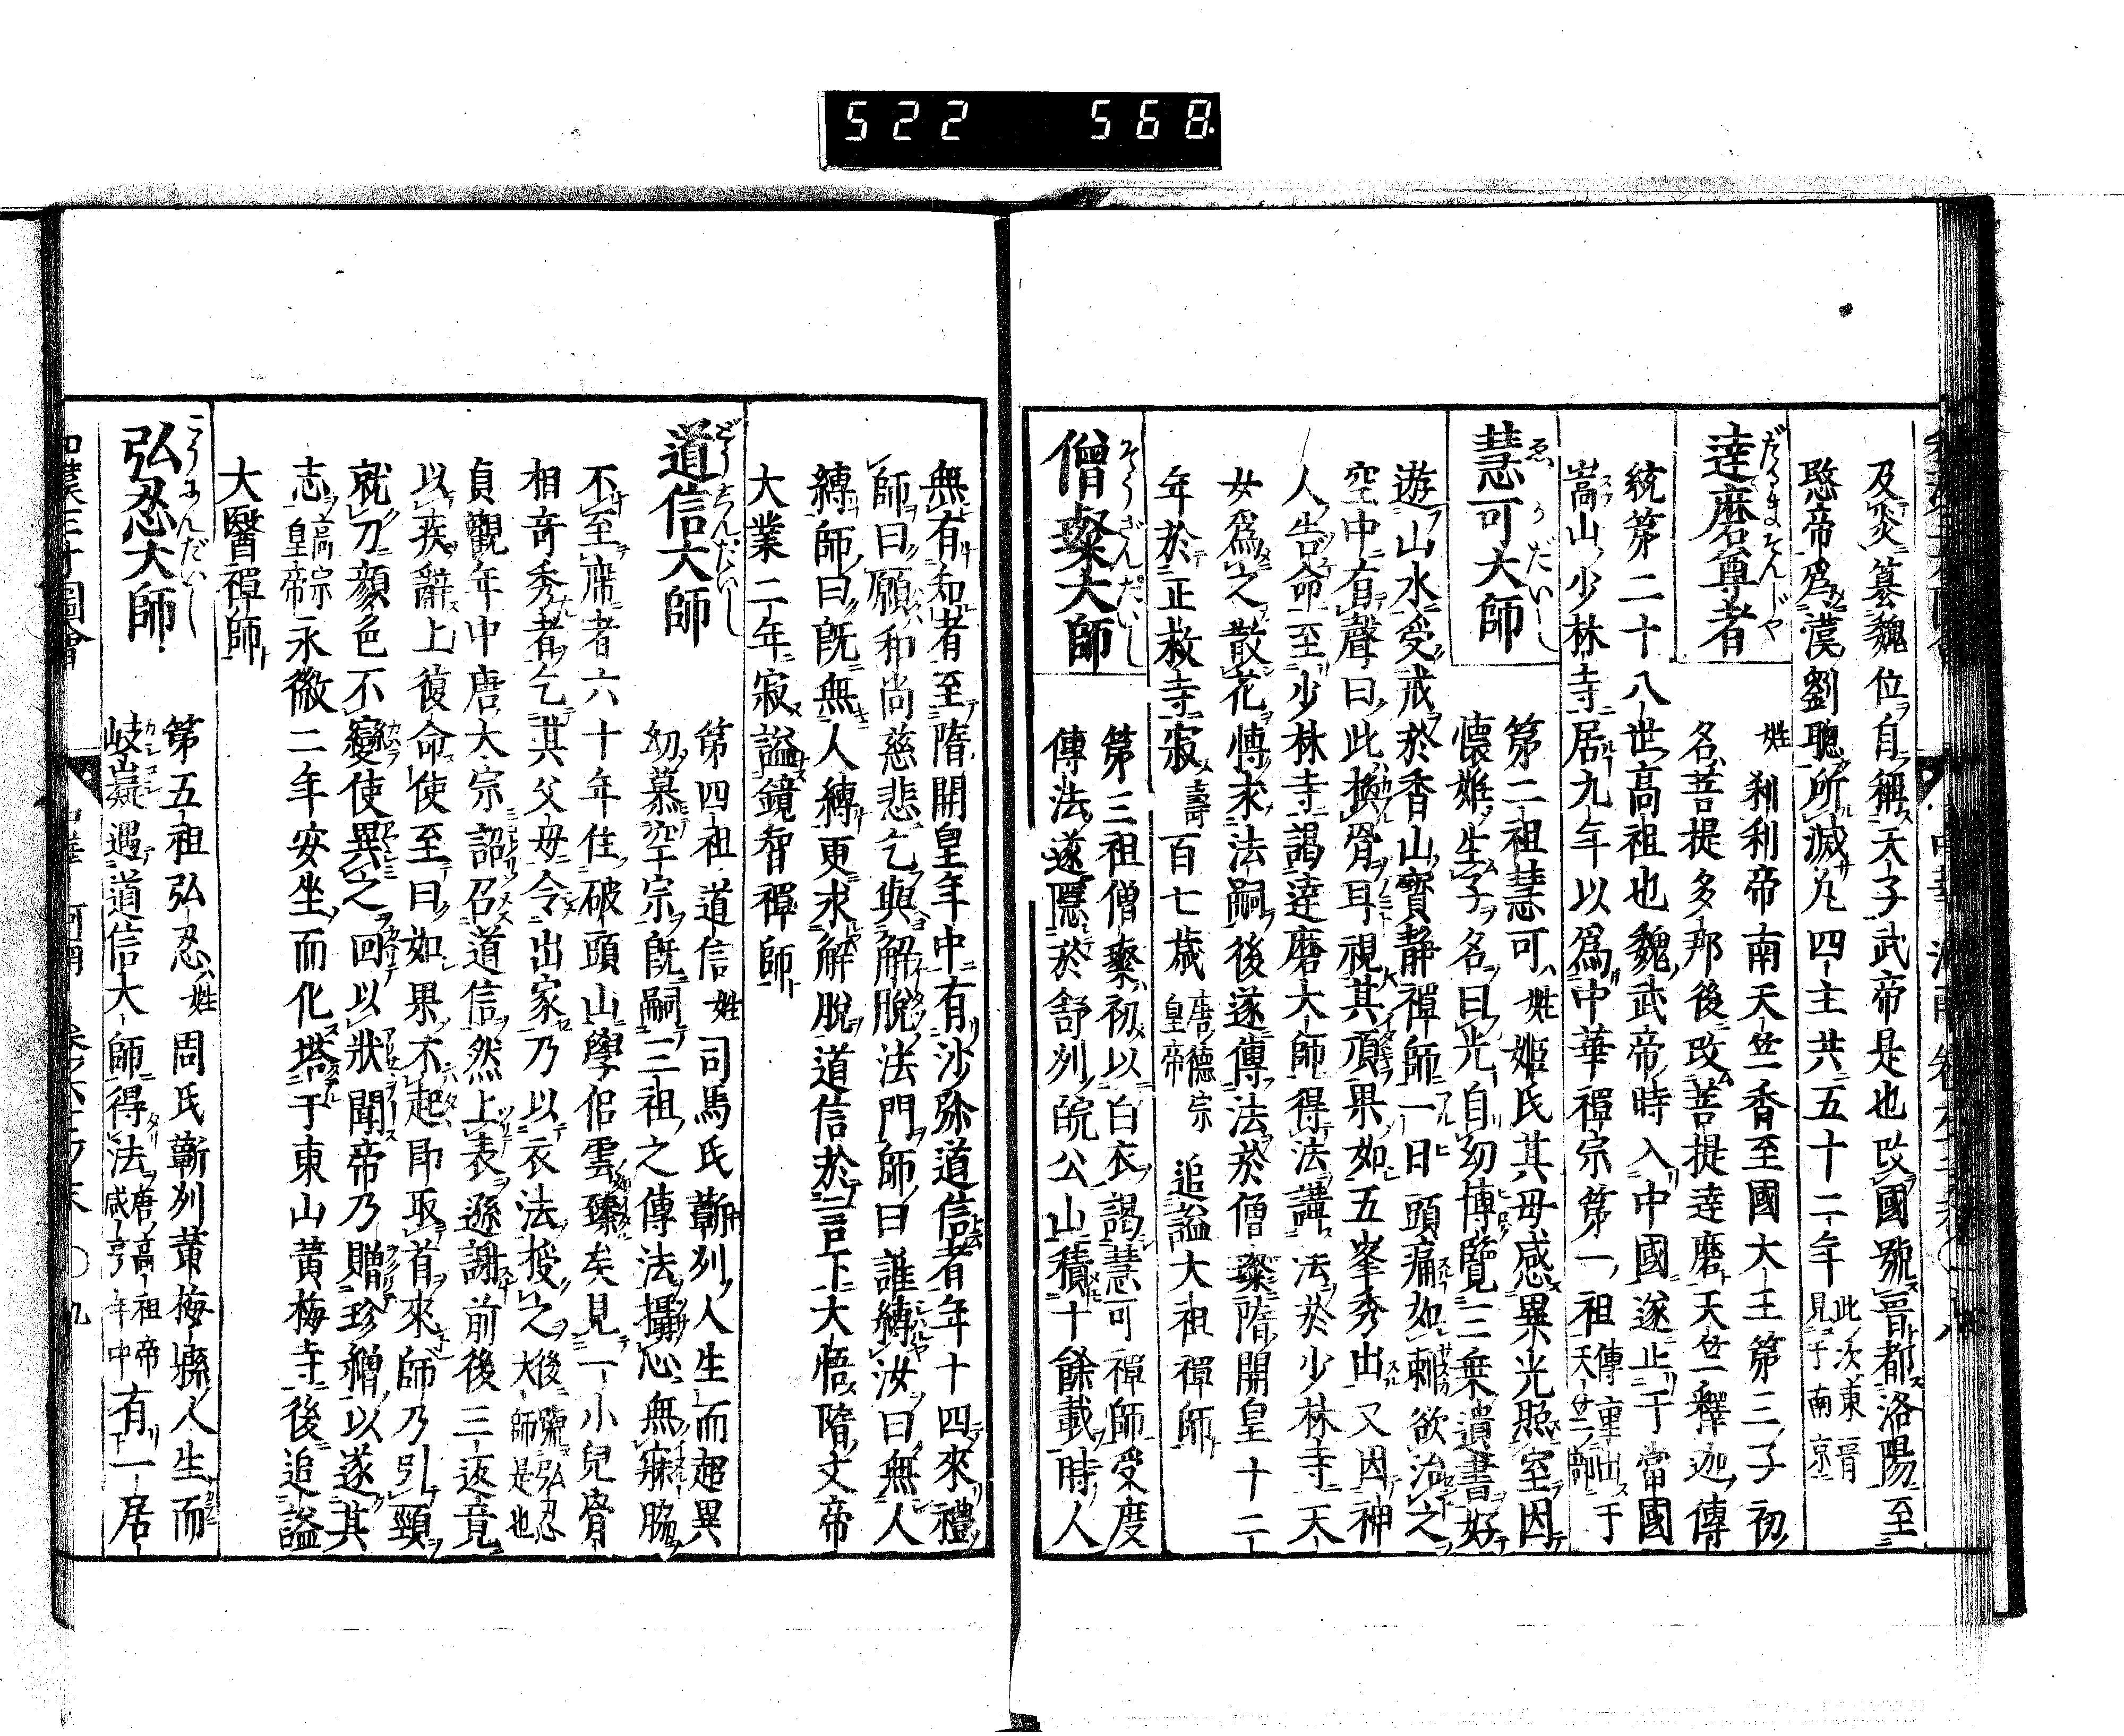 522 568
及炎簒魏位自稱天子武帝是也改國號晋都洛陽至
愍帝爲漢劉聰所滅凡四主共五十二年 此次東晋見于南京
達磨尊者 だるまそんじや
姓刹利帝南天竺香至國大王第三子初
名菩提多邦後改菩提達磨天竺釋迦傳
統第二十八世高祖也魏武帝時入中國遂止于當國
嵩山少林寺居九年以爲中華禪宗第一祖 傳車出于天竺ノ部
慧可大師 ゑかだいし
第二祖慧可姓姬氏其母感異光照室因
懷姙生子名曰光自幼博覽三乗遺書好
遊山水受戒於香山寳静禪師一日頭痛如刺欲治之
空中有聲曰此換骨耳視其頂果如五峯秀出又因神
人告命至少林寺謁達磨大師得法講法於少林寺天
女爲之散花博求法嗣後遂傳法於僧璨隋開皇十二
年於正救寺寂壽百七歲 唐德宗皇帝 追諡大祖禪師
僧璨大師 そうざんだいし
第三祖僧璨初以白衣謁慧可禪師受度
傳法遂隱於舒州皖公山積十餘載時人
無有知者至隋開皇年中有沙弥道信者年十四來禮
師曰願和尚慈悲乞與解脫法門師曰誰縛汝曰無人
縛師曰既無人縛更求解脫道信於言下大悟隋文帝
大業二年寂諡鏡智禪師
道信大師 どうしんだいし
第四祖道信姓司馬氏蘄州人生而超異
幼慕空宗既嗣三祖之傳法攝心無寐脇
不至席者六十年住破頭山學侶雲臻矣見一小兒骨
相奇秀者乞其父母令出家乃以衣法授之 後號弘忍大師是也
貞觀年中唐太宗詔召道信然上表遜謝前後三返竟
以疾辭上復命使至曰如果不起即取首來師乃引頸
就刀顔色不變使異之回以狀聞帝乃贈珍繒以遂其
志 高宗皇帝 永徽二年安坐而化塔于東山黃梅寺後追諡
大醫禪師
弘忍大師 こうにんだいし
第五祖弘忍姓周氏蘄州黃梅縣人生而
岐嶷遇道信大師得法 唐高祖帝咸亨年中 有一居